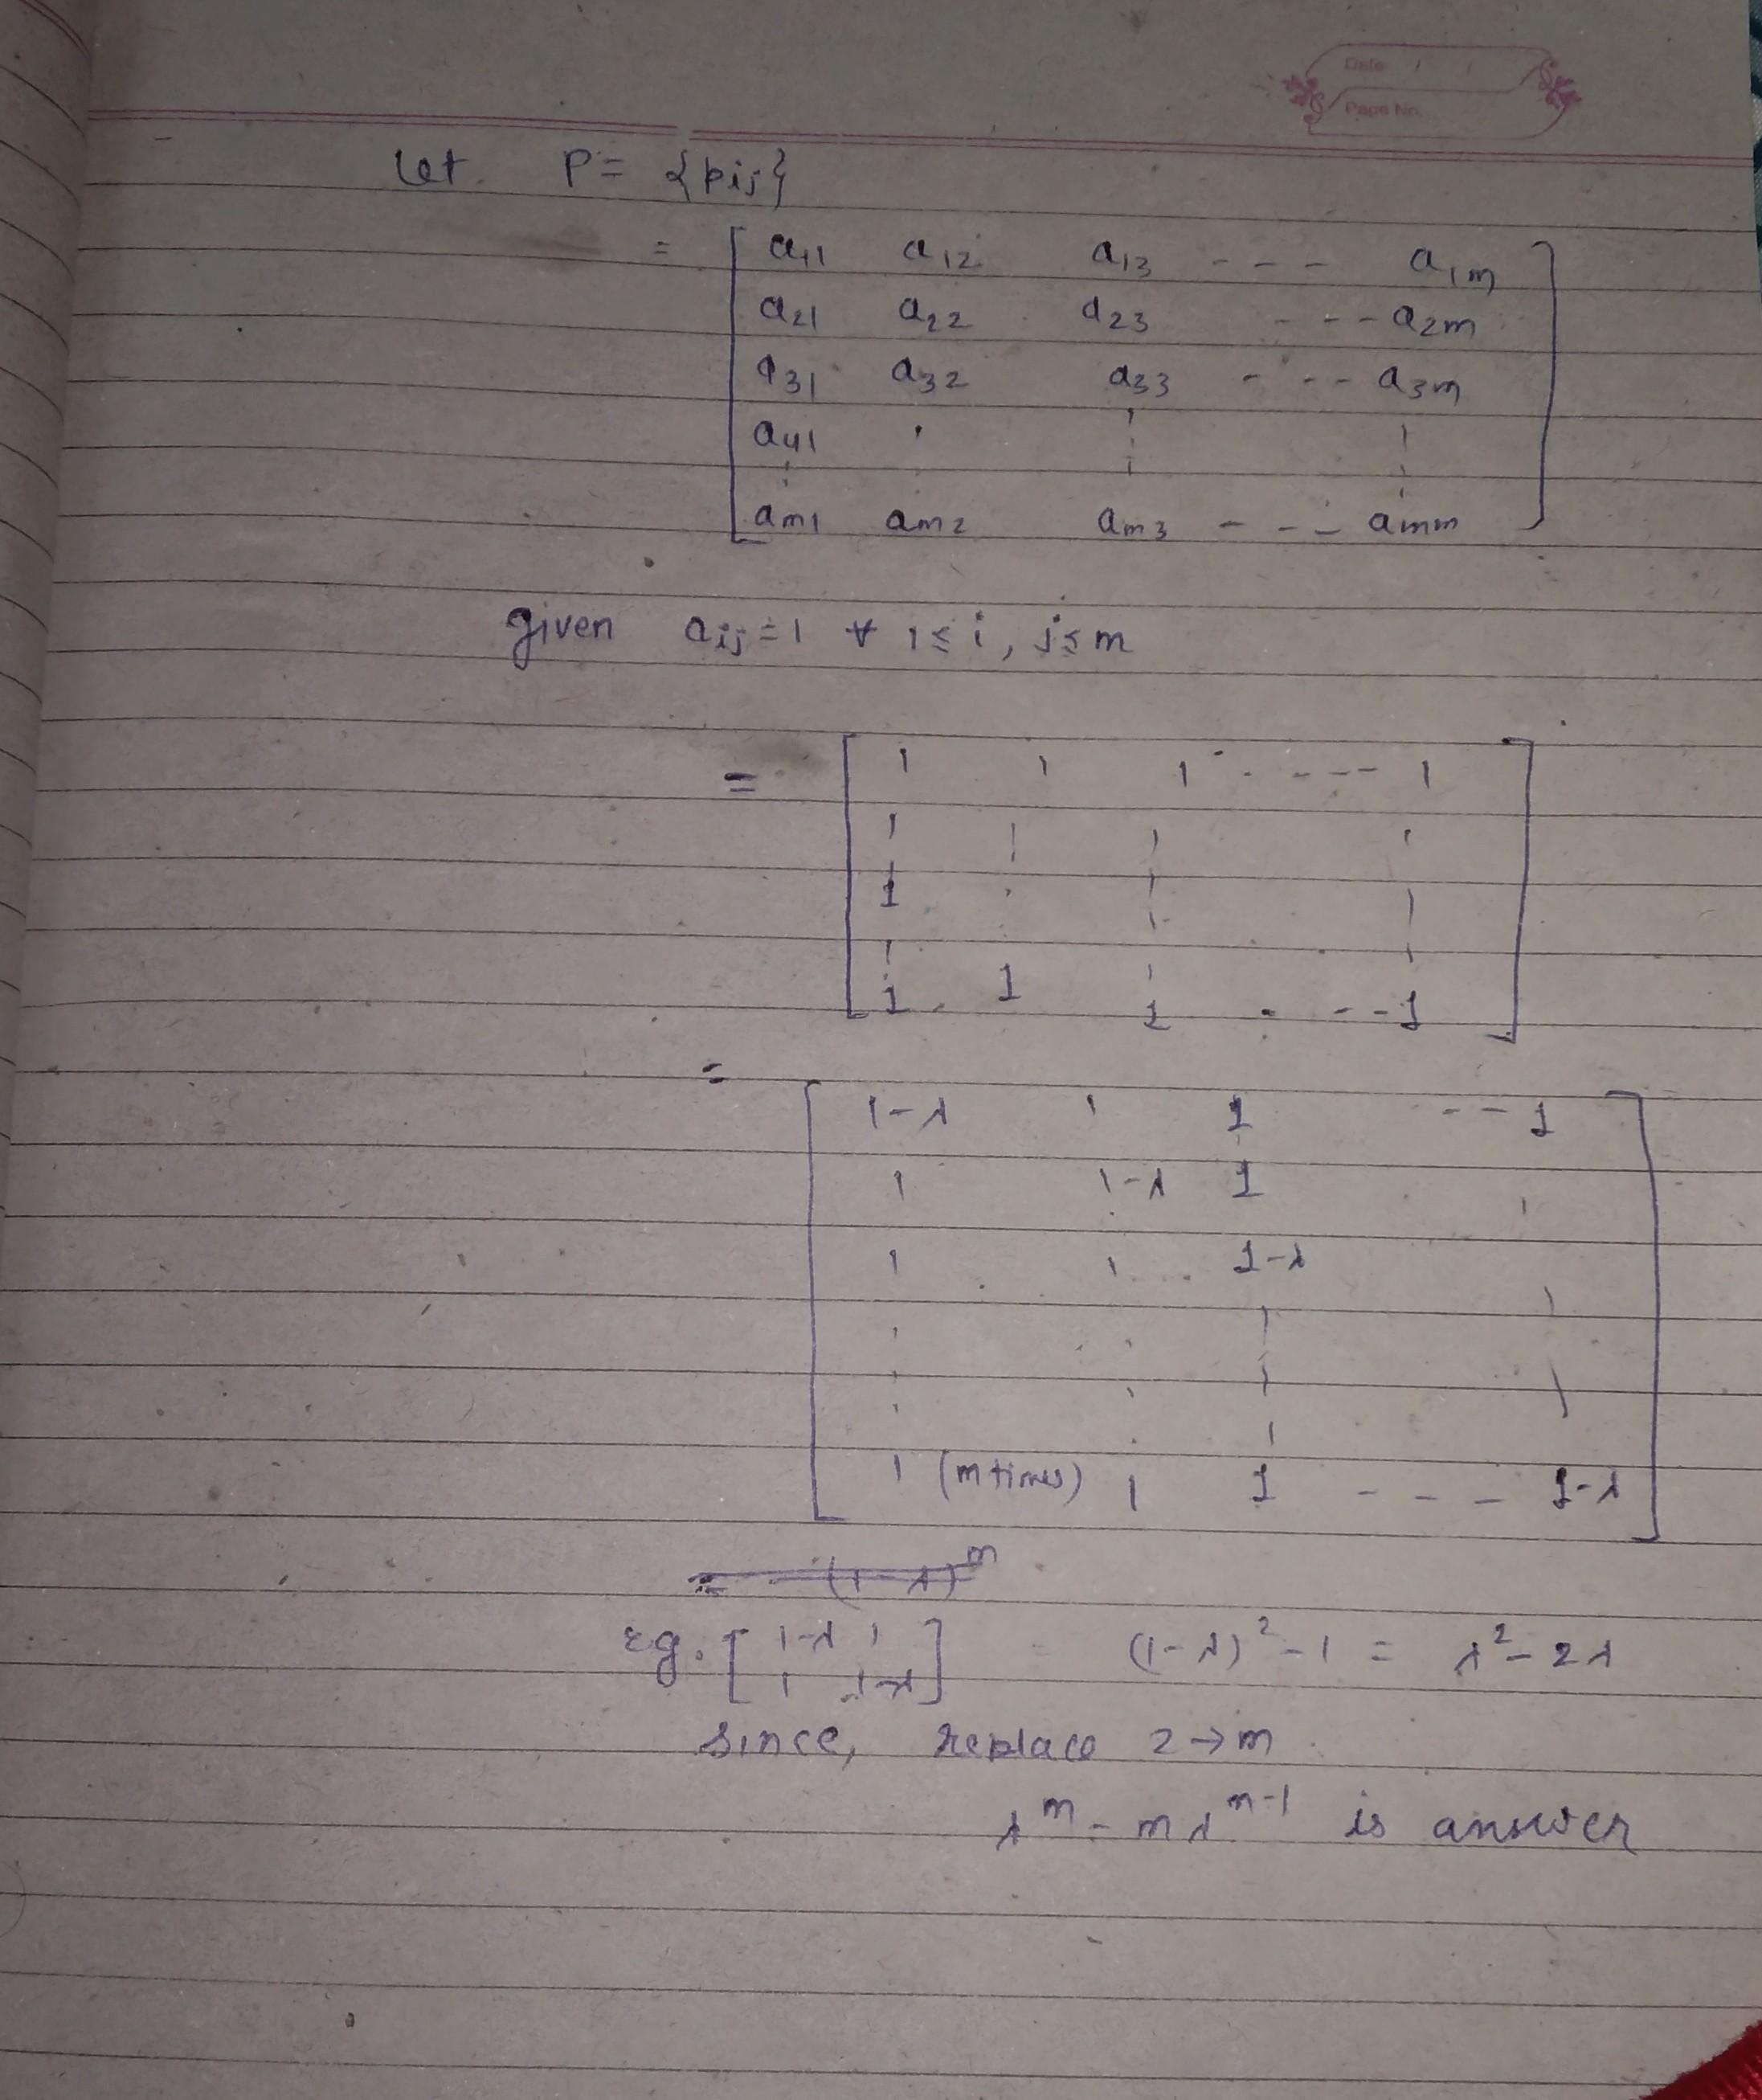 Date / /
Page No.
Let P = {pij}
= [ a11 a12 a13 - - - a1m
a21 a22 a23 - - - a2m
a31 a32 a33 - - - a3m
a41
am1 am2 am3 - - - amm ]
given aij = 1 ∀ 1 ≤ i, j ≤ m
= [ 1 1 1 - - - - 1
1 1 1 1
1
1 1 1 - - - 1 ]
= [ 1-λ 1 1 - - 1
1 1-λ 1
1 1 1-λ
1 (m times) 1 1 - - - 1-λ ]
= (1-λ)^m
eg. [ 1-λ 1 (1-λ)² - 1 = λ² - 2λ
1 1-λ ]
since, replace 2→m
λ^m - mλ^m-1 is answer